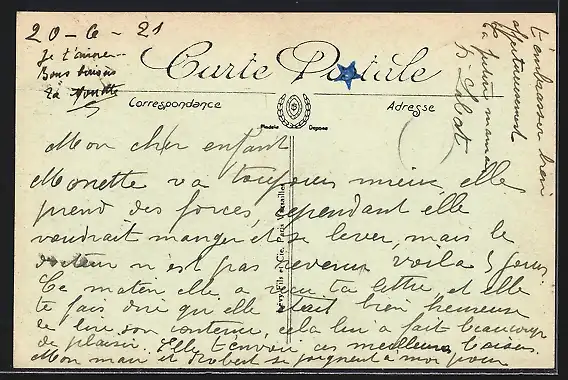 20-6-21
Je t'aime
Bons baisers
Ta Monette
Carte Postale
Correspondance
Adresse
Modèle Déposé
Lévy Fils et Cie, Paris Versailles
Mon cher enfant
Monette va toujours mieux, elle
prend des forces, cependant elle
voudrait manger et se lever, mais le
docteur n'est pas revenu voila 5 jours.
Ce matin elle a reçu ta lettre et elle
te fais dire qu'elle était bien heureuse
de lire son contenu, cela lui a fait beaucoup
de plaisir. Elle t'envoie ces meilleurs baisers.
Mon mari et Robert se joignent à moi pour
t'embrasser bien
affectueusement
Ta petite maman